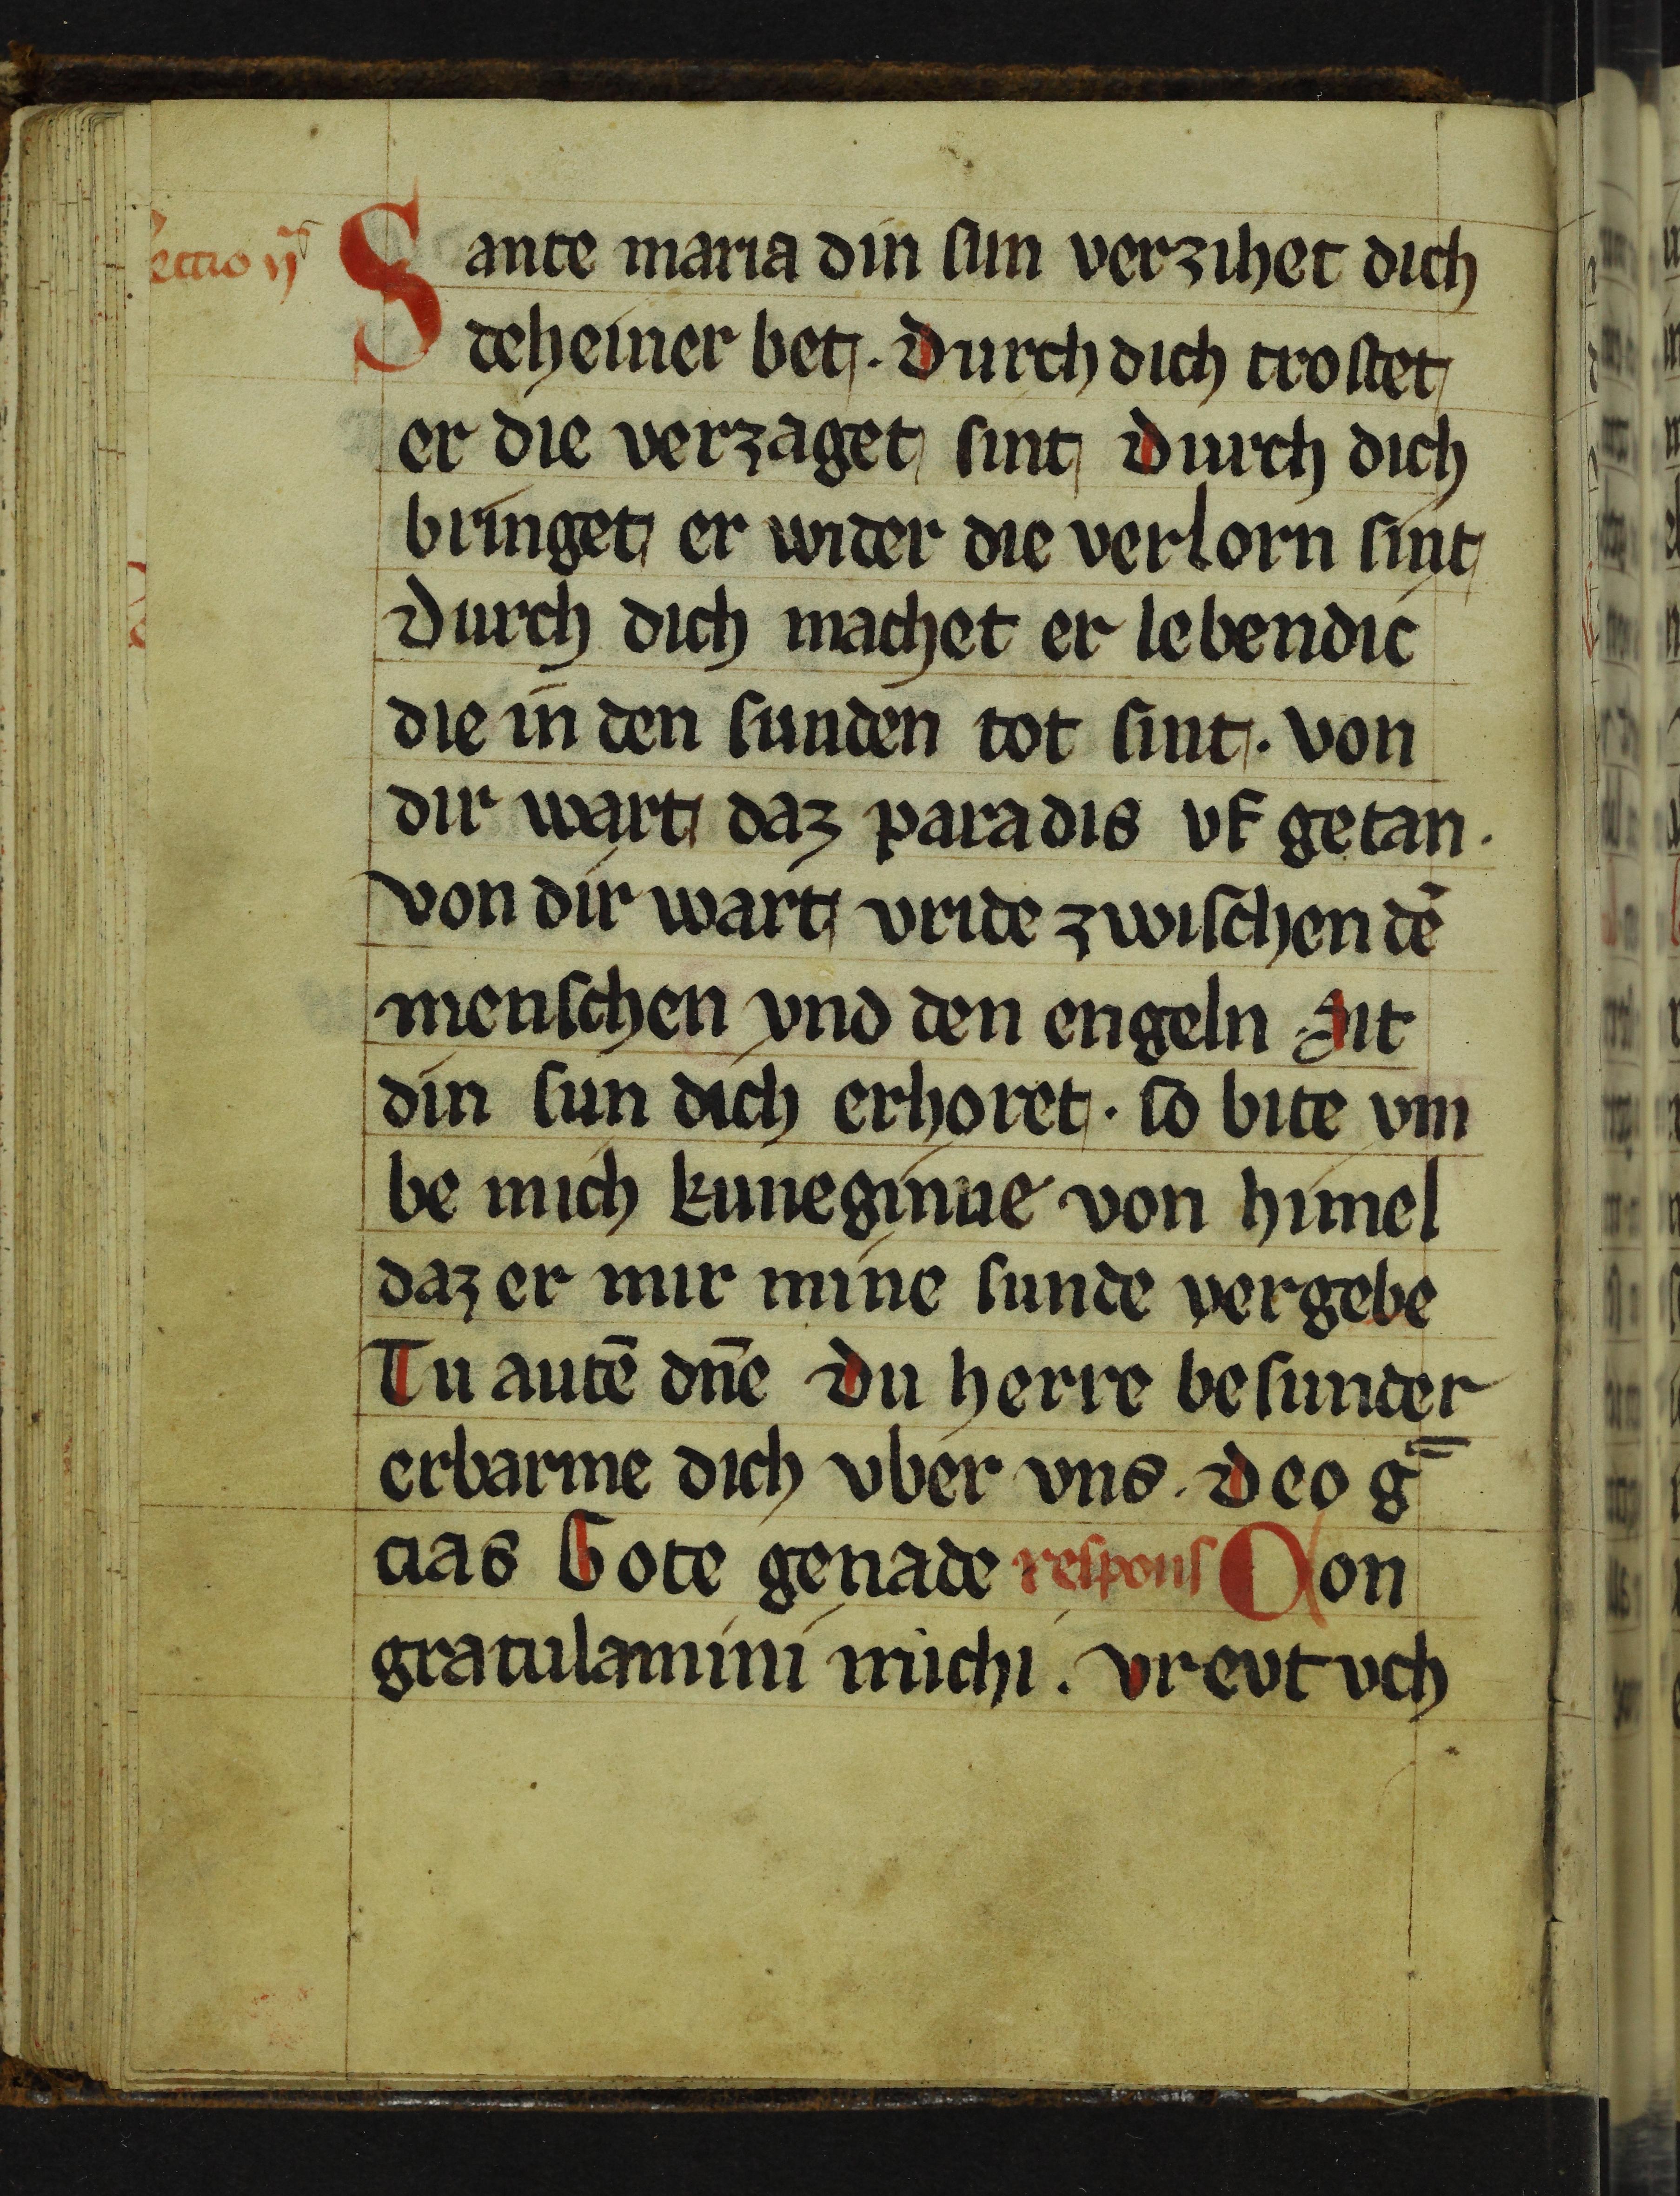 lectio ij^a
Sante maria din sun verzihet dich
deheiner bet. Durch dich trostet
er die verzaget sint Durch dich
bringet er wider die verlorn sint
Durch dich machet er lebendic
die in den sunden tot sint. von
dir wart daz paradis vf getan.
von dir wart vride zwischen dē
menschen vnd den engeln Sit
din sun dich erhoret. so bite vm
be mich kuneginne von himel
daz er mir mine sunde vergebe
Tu autē dn̄e Du herre besunder
erbarme dich vber vns. Deo ḡ
cias Gote genade respons Con
gratulamini michi. vrevt vch